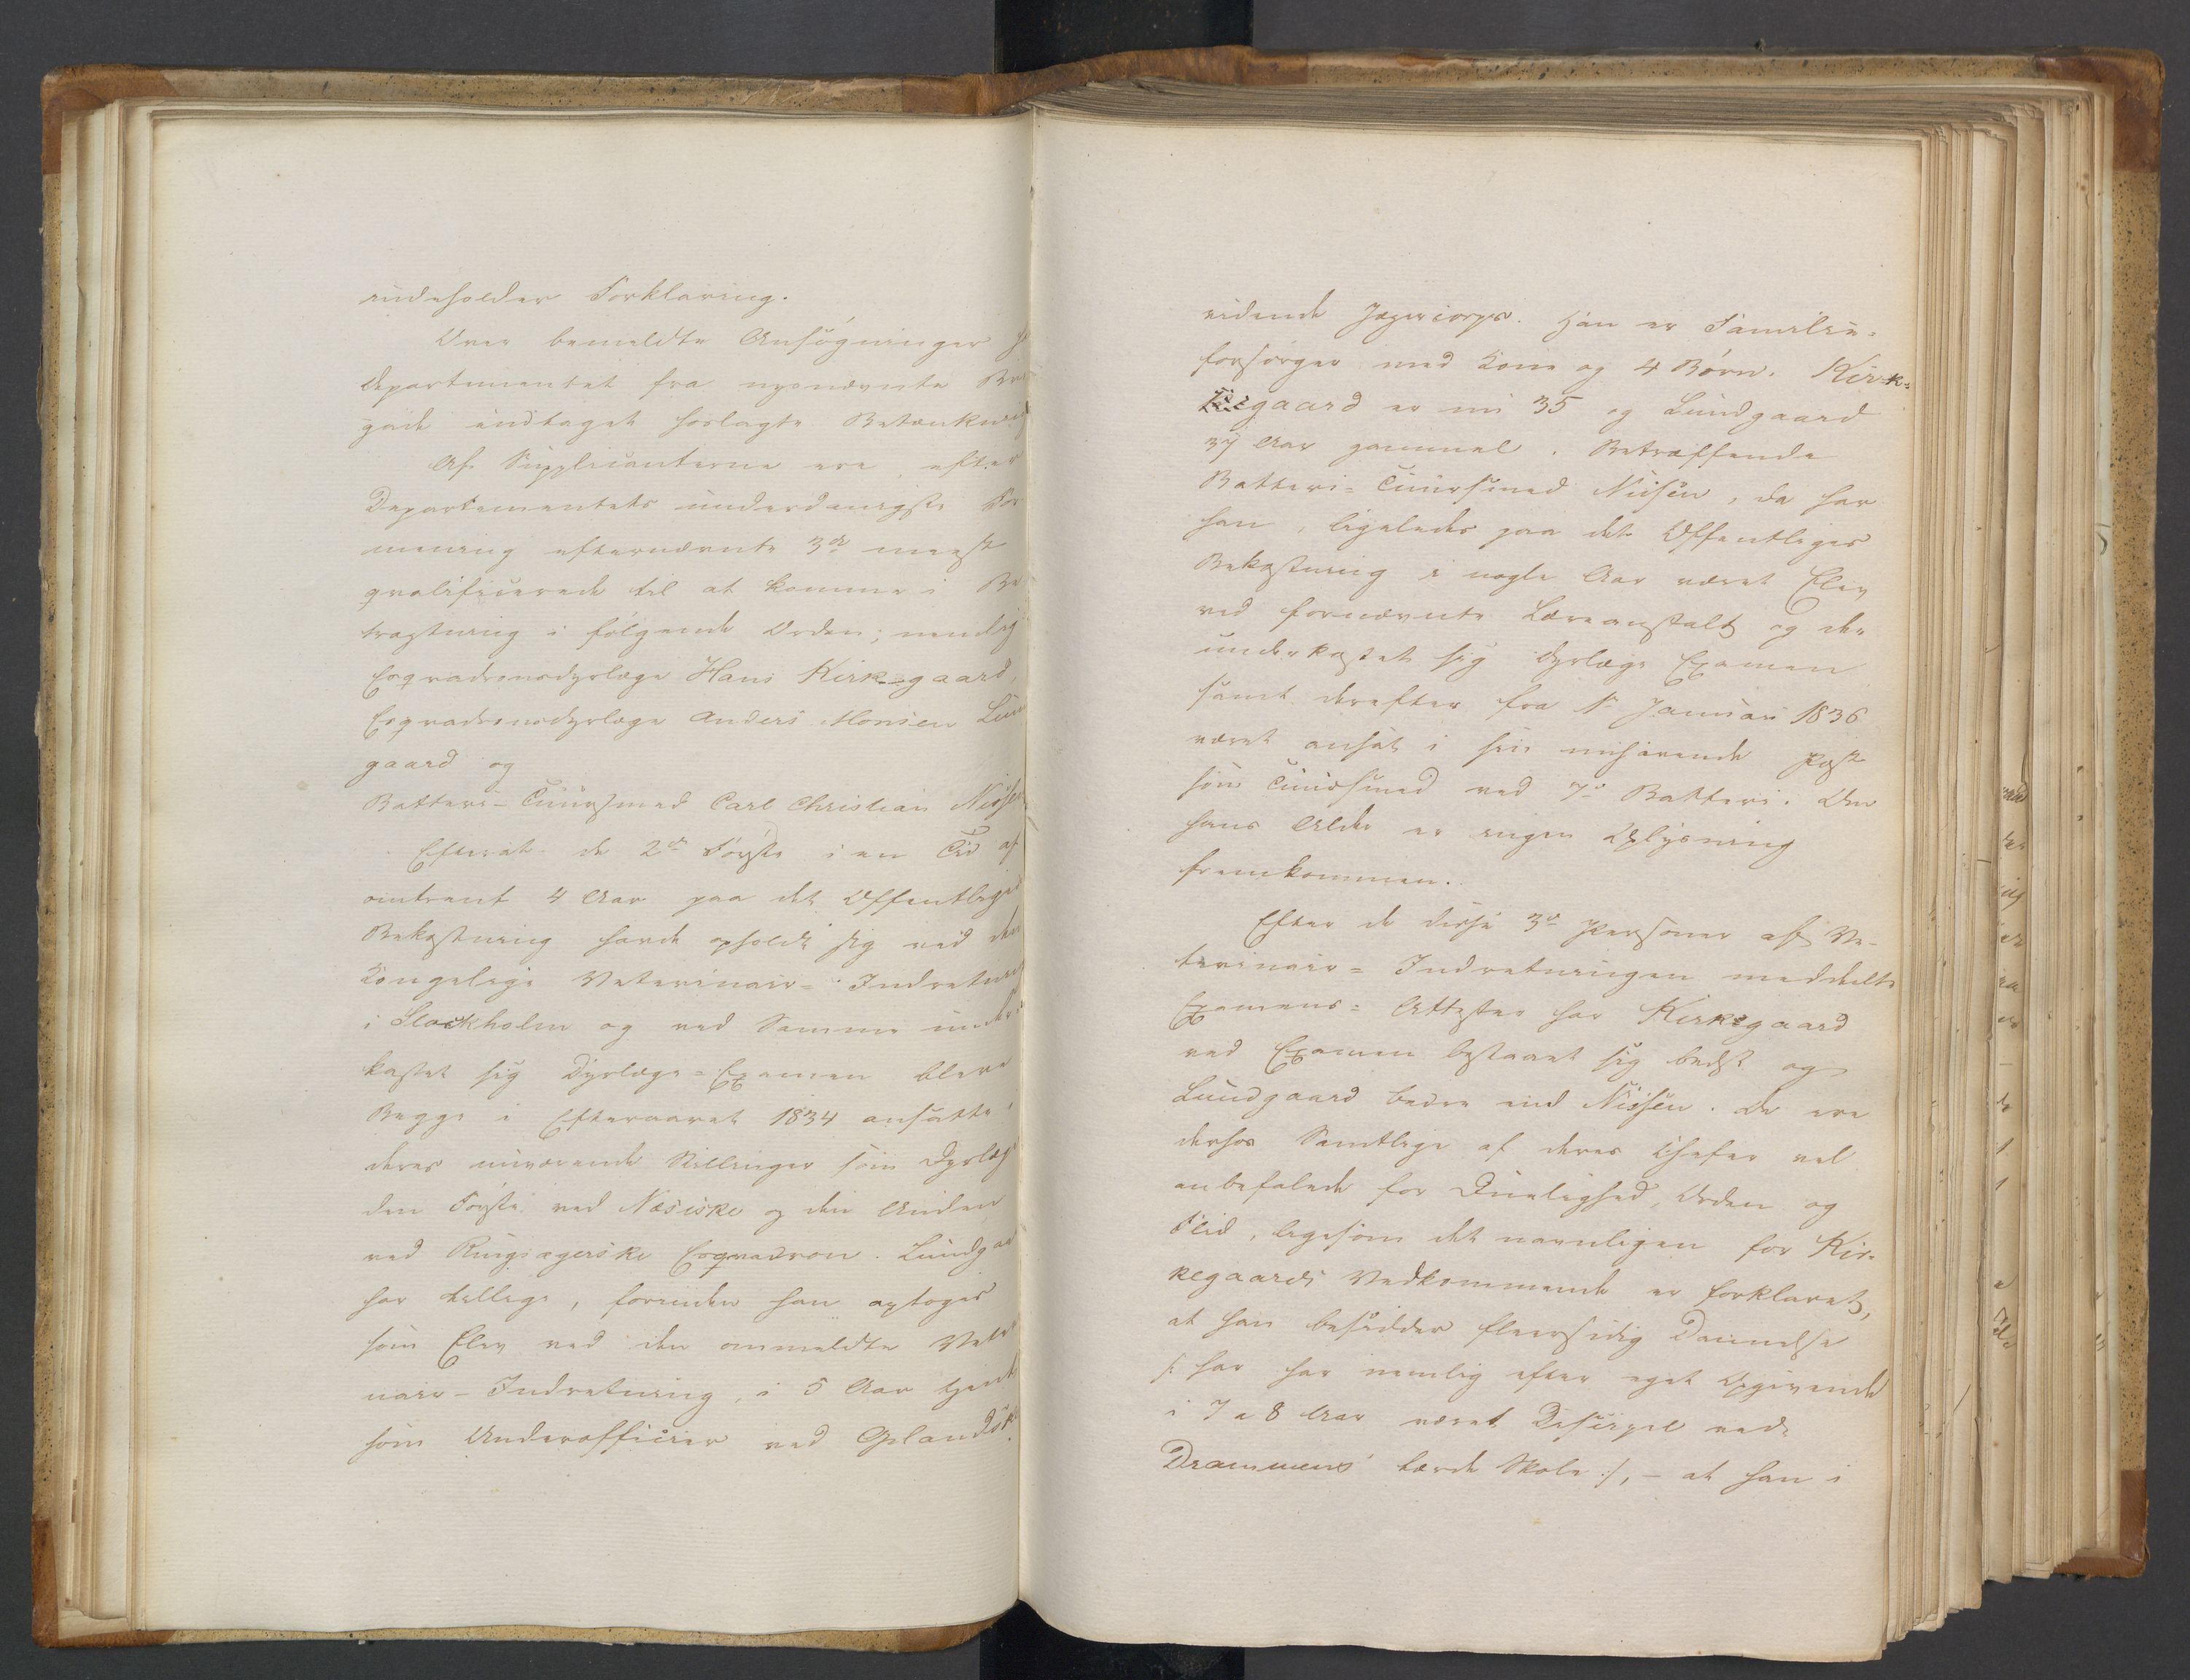 indeholder Forklaring.
Over bemeldte Ansøgninger h
Departementet fra nysnævnte Bri
gade indtaget herlagte Betænkning
Af Supplicanterne ere, efter
Departementets underdanigste For
mening efternævnte 3de meest
qvalificerede til at komme i Be
tragtning i følgende Orden; nemlig
Esqvadronsdyrlæge Hans Kirkegaard,
Esqvadronsdyrlæge Anders Monsen Lun
gaard og
Batteri-Cuursmed Carl Christian Nissen
Efterat de 2de Første i en Tid af
omtrent 4 Aar paa det Offentliges
Bekostning havde opholdt sig ved den
Kongelige Veterinair-Indretning
i Stockholm og ved Samme under
kastet sig Dyrlæge-Examen bleve
Begge i Efteraaret 1834 ansatte i
deres nuværende Stillinger som Dyrlæge
den Første ved Næsiske og den Anden
ved Ringsagerske Esqvadron. Lundgaa
har tillige, forinden han optoges
som Elev ved den ommeldte Vete
nair-Indretning, i 5 Aar tjent
som Underofficier ved Oplandsk
ridende Jægercorps. Han er Familie-
forsørger med Kone og 4 Børn. Kirk-
egaard er nu 35 og Lundgaard
37 Aar gammel. Betræffende
Batteri-Cuursmed Nissen, da har
han, ligeledes paa det Offentliges
Bekostning i nogle Aar været Elev
ved fornævnte Læreanstalt og der
underkastet sig Dyrlæge Examen
samt derefter fra 1 Januari 1836
været ansat i sin nuhavende Post
som Cuursmed ved 7de Batteri. Om
hans Alder er ingen Oplysning
fremkommen.
Efter de disse 3de Personer af Ve-
terinair-Indretningen meddeelte
Examens-Attester har Kirkegaard
ved Examen bestaaet sig bedst og
Lundgaard bedre end Nissen. De ere
derhos Samtlige af deres Chefer vel
anbefalede for Duelighed, Orden og
Flid, ligesom det navnligen for Kir-
kegaards Vedkommende er forklaret,
at han besidder fleersidig Dannelse
/: har har nemlig efter eget Opgivende
i 7 a 8 Aar været Discipel ved
Drammens lærde Skole :/, - at han i